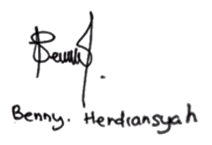 Benny.
Benny. Hendransyah